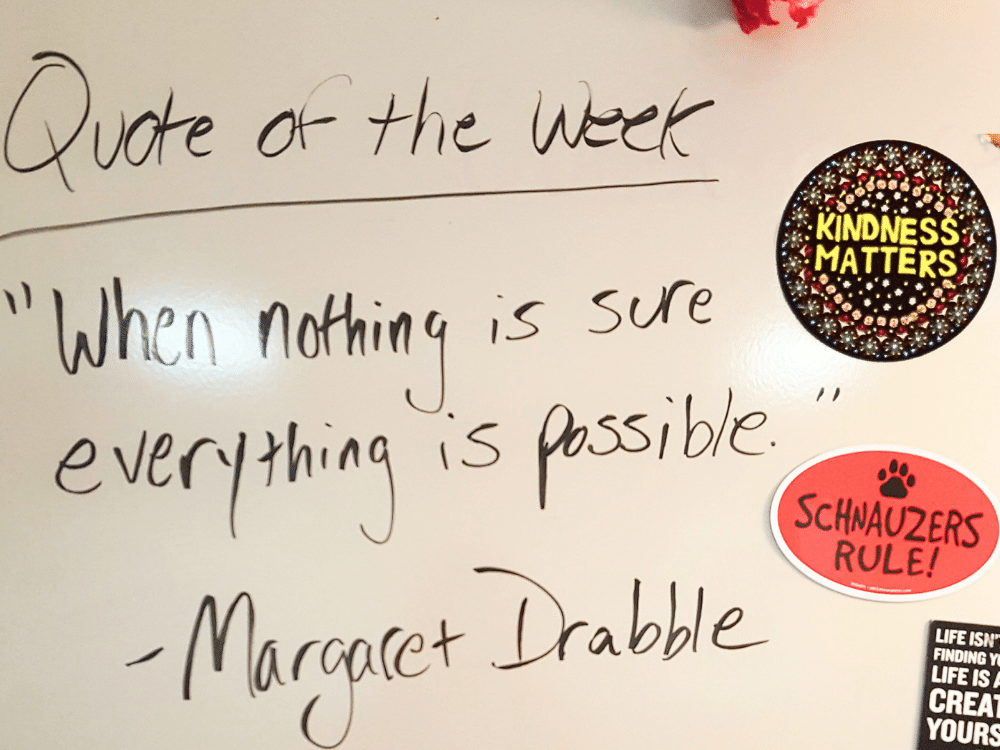 Quote of the Week
"When nothing is sure
everything is possible."
- Margaret Drabble
KINDNESS
MATTERS
SCHNAUZERS
RULE!
LIFE ISN'T
FINDING
LIFE IS